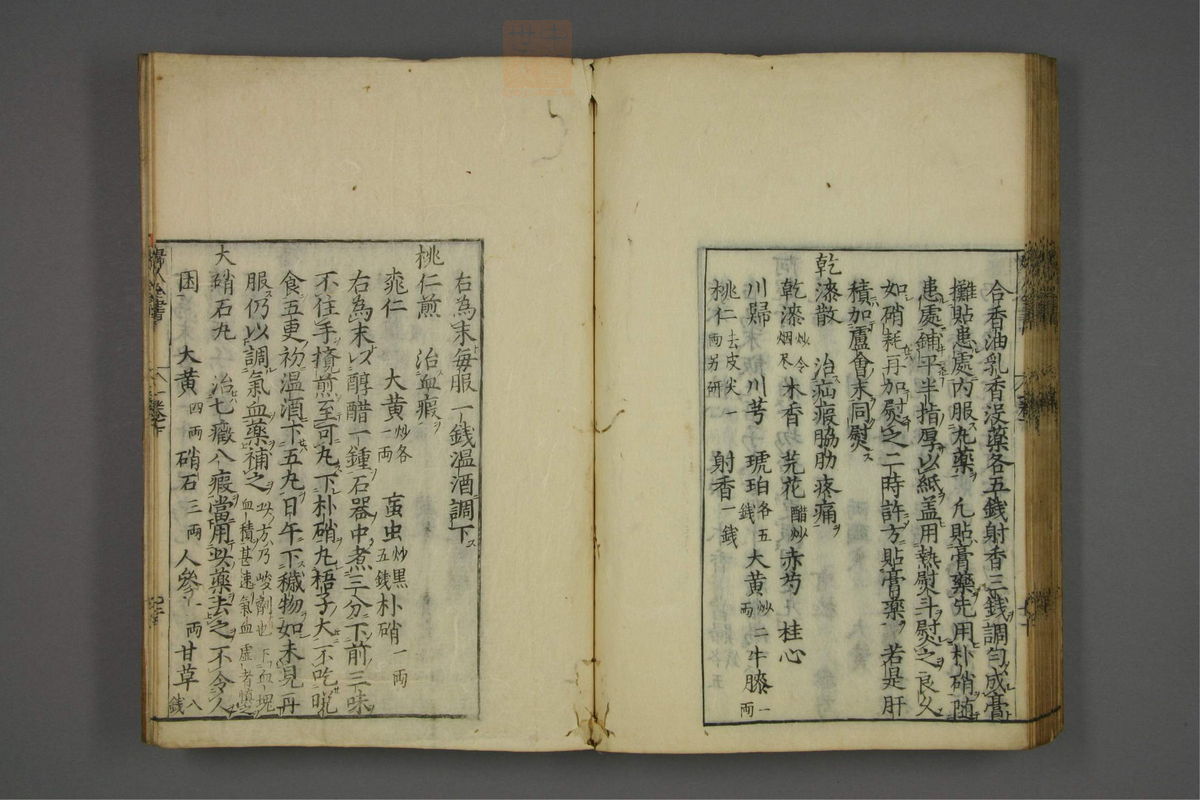 合香油乳香没藥各五錢射香三錢調勻成膏
攤貼患處内服丸藥 凡貼膏藥先用朴硝随
患處鋪平半指厚以紙盖用熱熨斗熨之良久
如硝耗再加熨之二時許方貼膏藥 若是肝
積加盧會末同熨
乾漆散 治疝瘕脇肋疼痛
乾漆炒令烟尽 木香 芫花醋炒 赤芍 桂心
川歸 川芎 琥珀各五錢 大黄炒二両 牛膝一両
桃仁去皮尖一両另研 射香一錢
右為末毎服一錢温酒調下
桃仁煎 治血瘕
桃仁 大黄炒各一両 䖟虫炒黒五錢 朴硝一両
右為末以醇醋一鍾石器中煮三分下前三味
不住手攪煎至可丸下朴硝丸梧子大不吃晩
食五更初温酒下五丸日午下穢物如未見再
服仍以調氣血藥補之 此方乃峻劑也下血塊血積甚速氣血虚者慎之
大硝石丸 治七癥八瘕當用此藥去之不令人
困 大黄四両 硝石三両 人參一両 甘草八錢